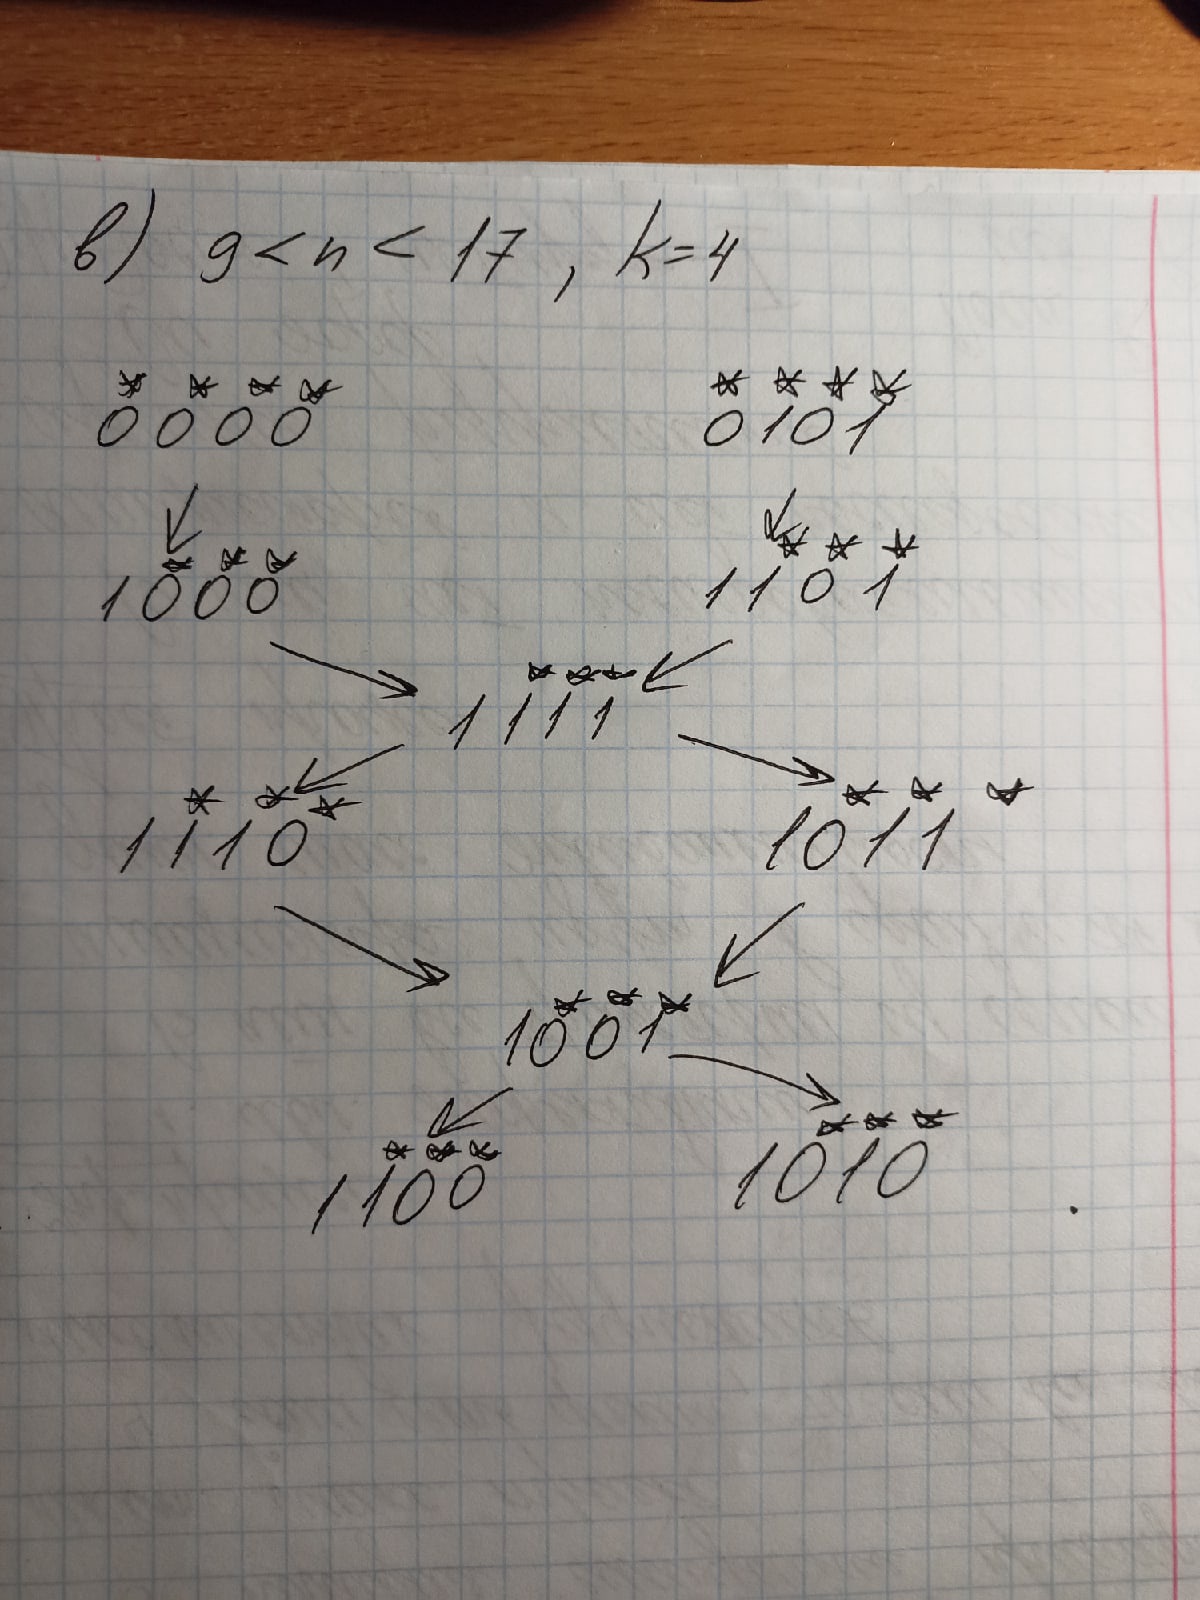 в) 9 < n < 17, k=4
0000 0101
1000 1101
1111
1110 1011
1001
1100 1010